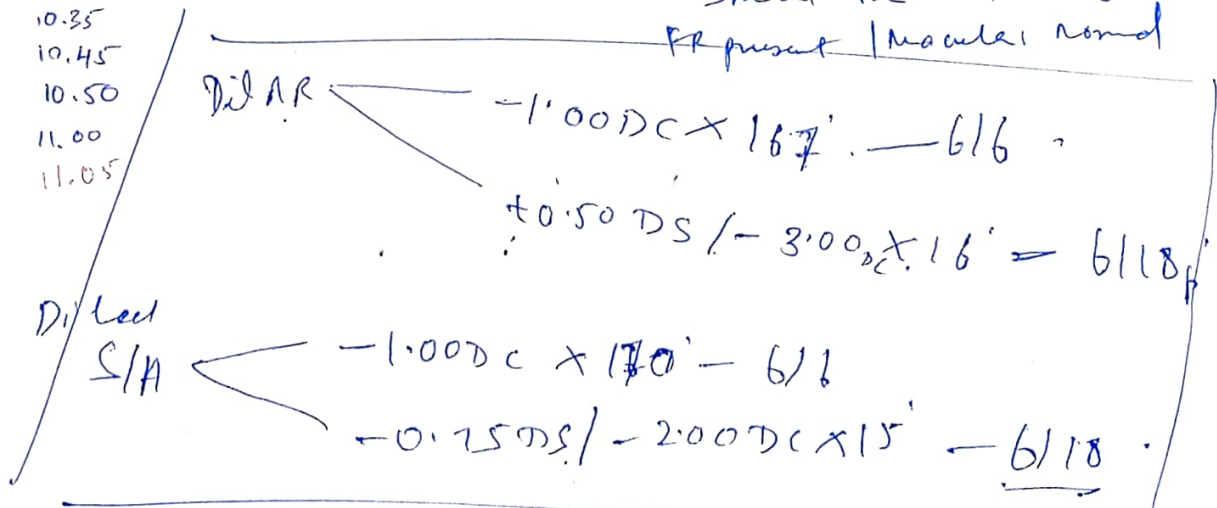 10.35
10.45
10.50
11.00
11.05
FR present / Macular normal
Dil AR
-1.00DC X 167° - 6/6
+0.50 DS /- 3.00 DC X 16° = 6/18p
Dilated
S/A
-1.00DC X 170° - 6/6
-0.75DS / - 2.00DC X 15° - 6/18